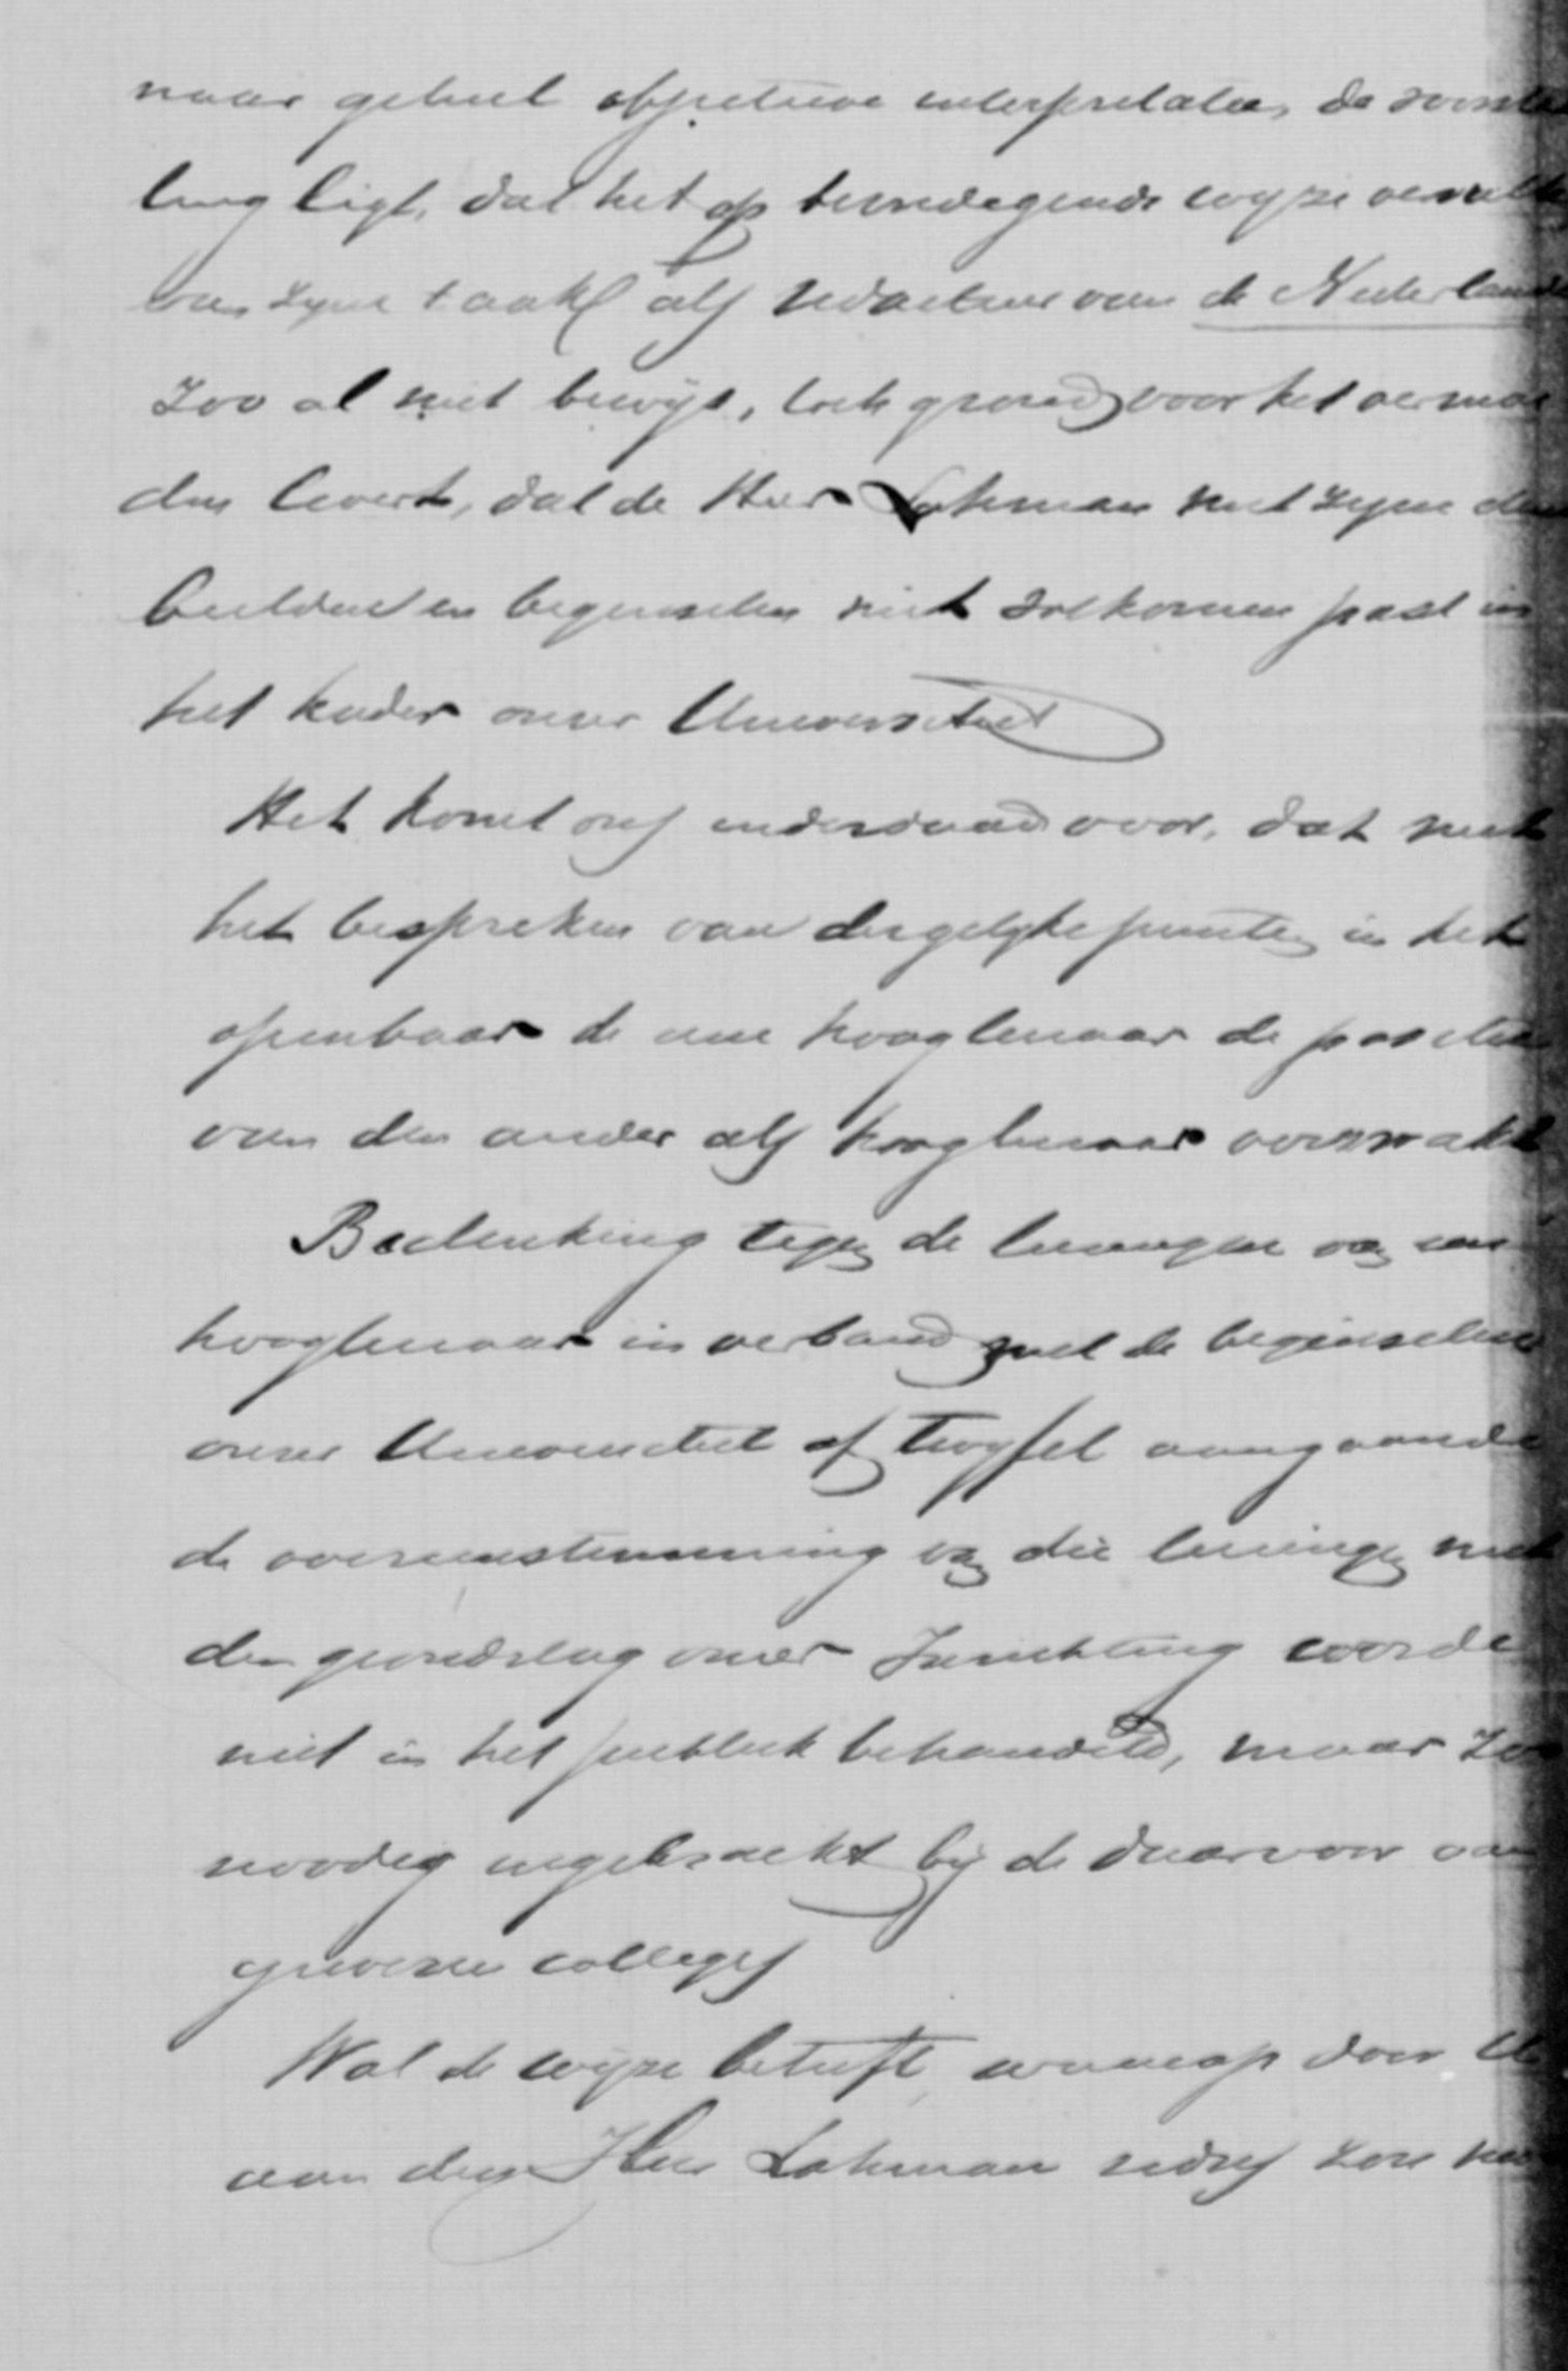 naar geheel objectieve interpretatie, de voorstel
ling ligt, dat het op bevredigende wyze vervull
van zyne taak als redacteur van de Nederland
zoo al niet bewijs, toch grond voor het vermoe
den levert, dat de Heer Lohman met zyne denk
beelden en beginselen niet volkomen past in
het kader onzer Universiteit
Het komt ons inderdaad voor, dat met
het bespreken van dergelyke punten in het
openbaar de eene hoogleeraar de positie
van den ander als hoogleeraar verzwakt
Bedenking tegen de leeringen van een
hoogleeraar in verband met de beginselen
onzer Universiteit of twyfel aangaande
de overeenstemming van die leeringen met
den grondslag onzer Inrichting worde
niet in het publiek behandeld, maar zoo
noodig ingebracht bij de daarvoor aan
gewezen colleges
Wat de wijze betreft, waarop door U
aan den Heer Lohman redres zou